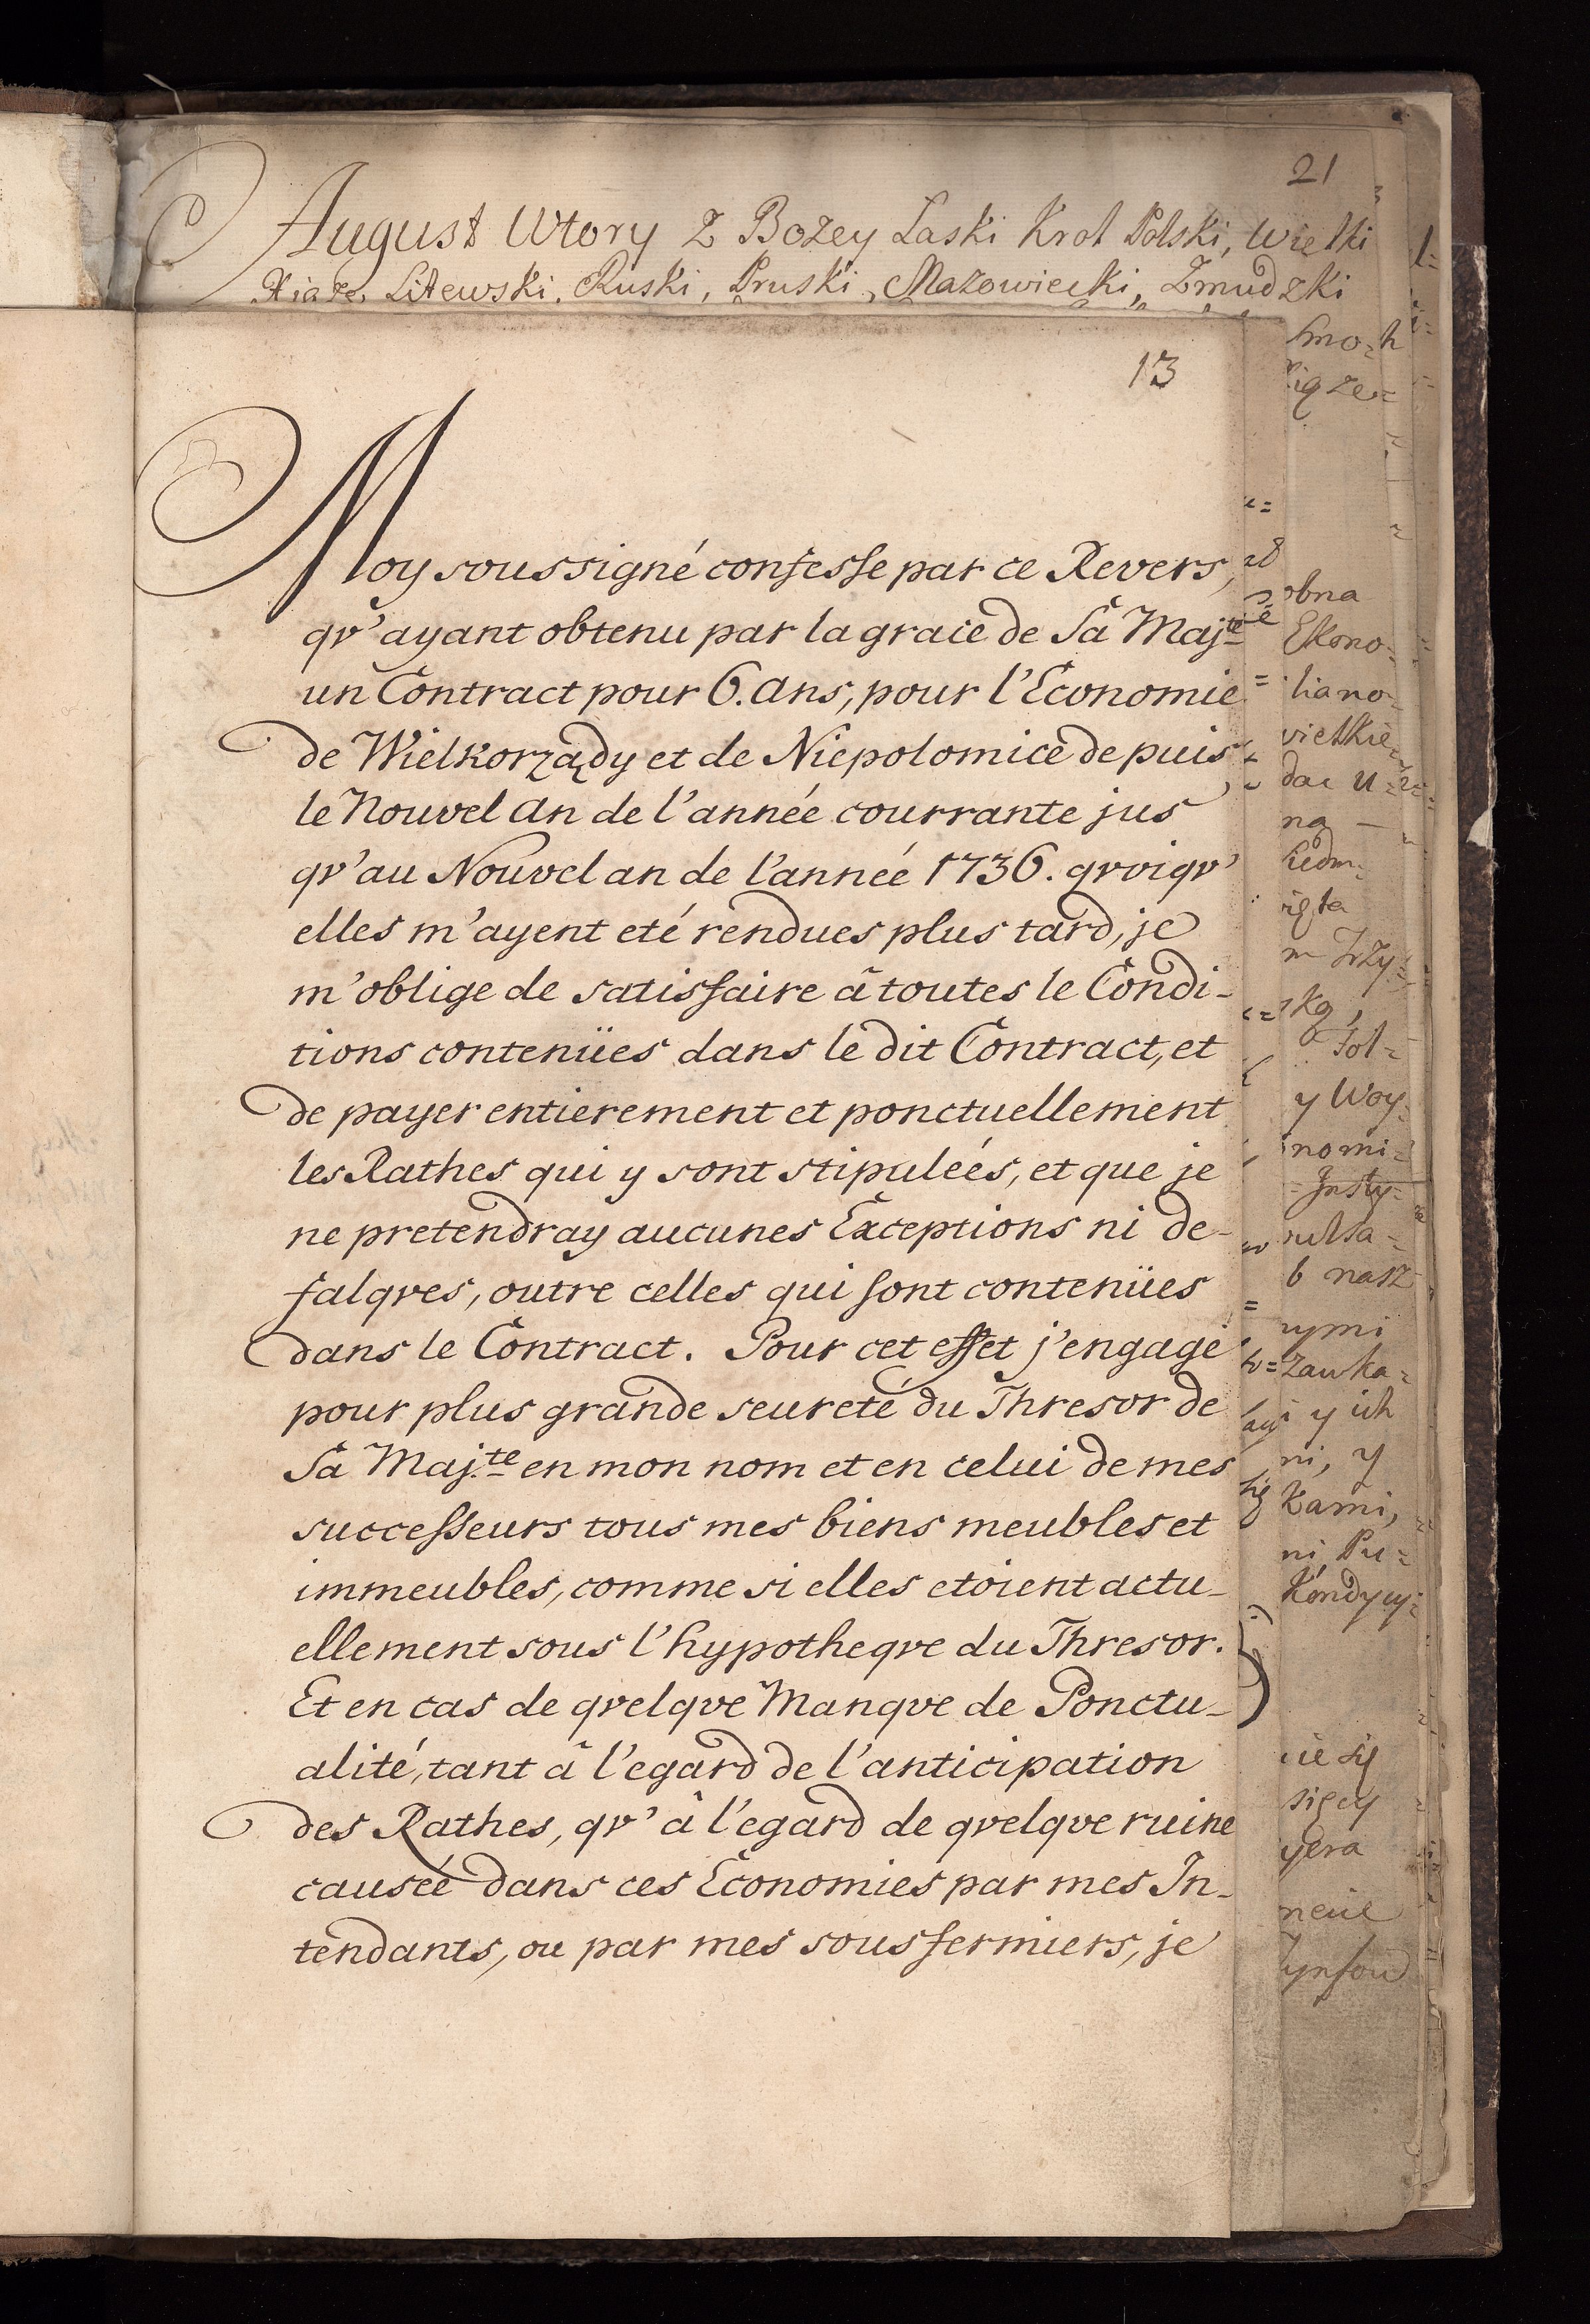 21
August Wtory Z Bozey Laski Krol Polski, Wielki
Xiąze, Litewski, Ruski, Pruski, Mazowiecki, Zmudzki
13
Moy soussigné confesse par ce Revers,
qv'ayant obtenu par la grace de Sa Maj.te
un Contract pour 6. Ans, pour l'Economie
de Wielkorządy et de Niepolomice depuis
le Nouvel An de l'année courrante jus
qv'au Nouvel an de l'année 1736. qvoiqv'
elles m'ayent eté rendues plus tard, je
m'oblige de satisfaire â toutes le Condi-
tions contenües dans le dit Contract, et
de payer entierement et ponctuellement
les Rathes qui y sont stipuleés, et que je
ne pretendray aucunes Exceptions ni de-
falqves, outre celles qui sont contenües
dans le Contract. Pour cet effet j'engage
pour plus grande seureté du Thresor de
Sa Maj.te en mon nom et en celui de mes
successeurs tous mes biens meubles et
immeubles, comme si elles etoient actu-
ellement sous l'hypotheqve du Thresor.
Et en cas de qvelqve Manqve de Ponctu-
alité, tant â l'egard de l'anticipation
des Rathes, qv'â l'egard de qvelqve ruine
causeé dans ces Economies par mes In-
tendants, ou par mes sousfermiers, je
obna
Ekono-
liano-
dac u-
na
y Woy-
nomi-
Insty-
b nasz
rymi
y ich
ni, y
Kami,
ni, Pu-
Kondycy-